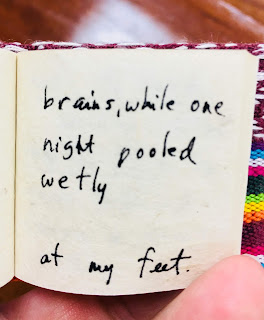 brains, while one
night pooled
wetly
at my feet.